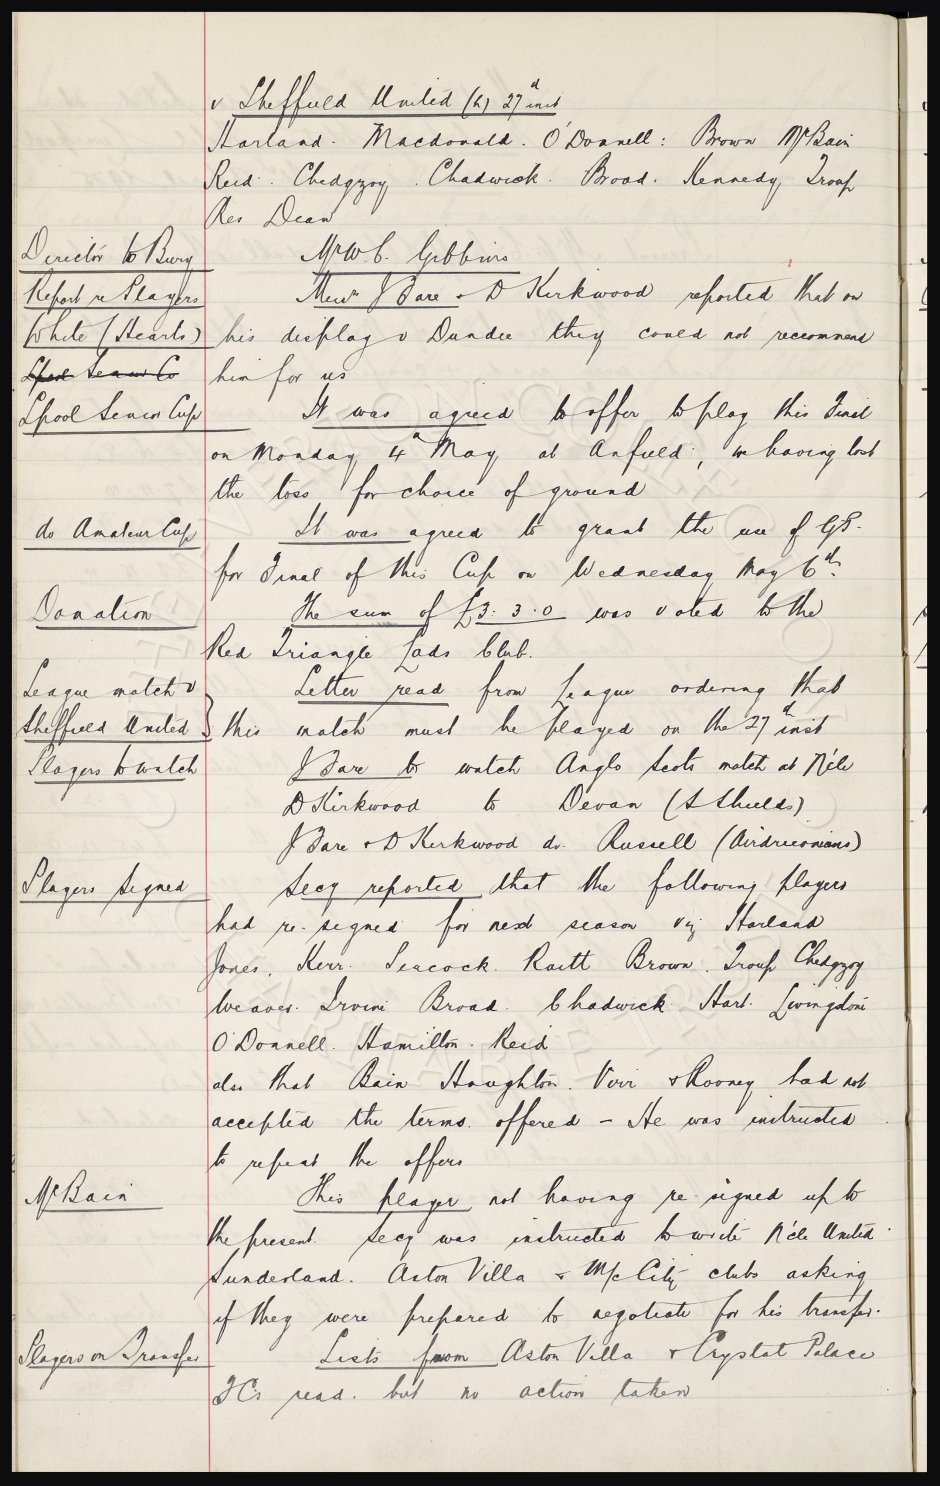 v Sheffield United (h) 27th inst
Harland. Macdonald. O'Donnell: Brown McBain
Reid. Chedgzoy. Chadwick. Broad. Kennedy, Troup
Res Dean
Director to Bury Mr W.C. Gibbins
Report re Players Messrs J Fare & D Kirkwood reported that on
White (Hearts) his display v Dundee they could not recommend
Lpool Senior Co him for us
Lpool Senior Cup It was agreed to offer to play this Final
on Monday 4th May at Anfield, we having lost
the toss for choice of ground
do Amateur Cup It was agreed to grant the use of GP.
for Final of this Cup on Wednesday May 6th.
Donation The sum of £3.3.0 was voted to the
Red Triangle Lads Club.
League match v Letter read from League ordering that
Sheffield United } this match must be played on the 27th inst
Players to watch J Fare to watch Anglo Scots match at N'cle
D Kirkwood to Devan (S Shields)
J Fare & D Kirkwood do. Russell (Airdrieonians)
Players Signed Secy reported that the following players
had re-signed for next season viz Harland
Jones. Kerr. Peacock. Raitt Brown. Troup Chedgzoy
Weaver. Irvine Broad. Chadwick. Hart. Livingstone
O'Donnell. Hamilton. Reid
also that Bain Houghton. Virr & Rooney had not
accepted the terms offered - He was instructed
to repeat the offers
McBain This player not having re-signed up to
the present. Secy was instructed to write N'cle United
Sunderland. Aston Villa & M/c City clubs asking
if they were prepared to negotiate for his transfer.
Players on Transfer Lists from Aston Villa & Crystal Palace
FCs read. but no action taken